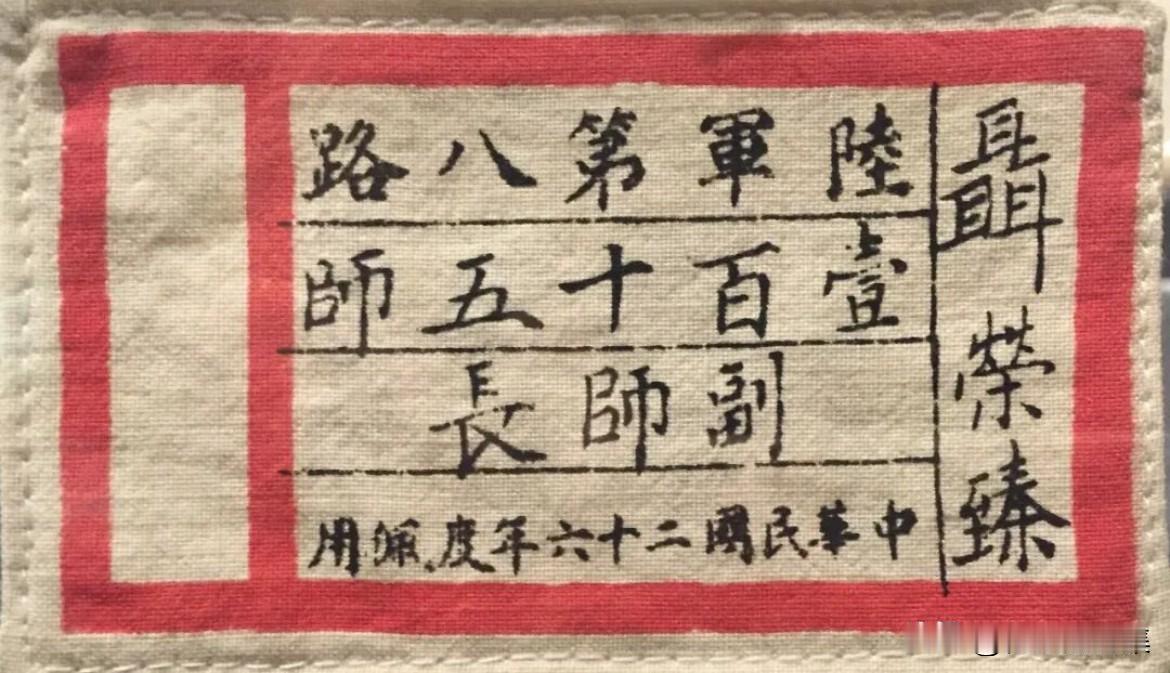 聶榮臻
陸軍第八路
壹百十五師
副師長
中華民國二十六年度佩用